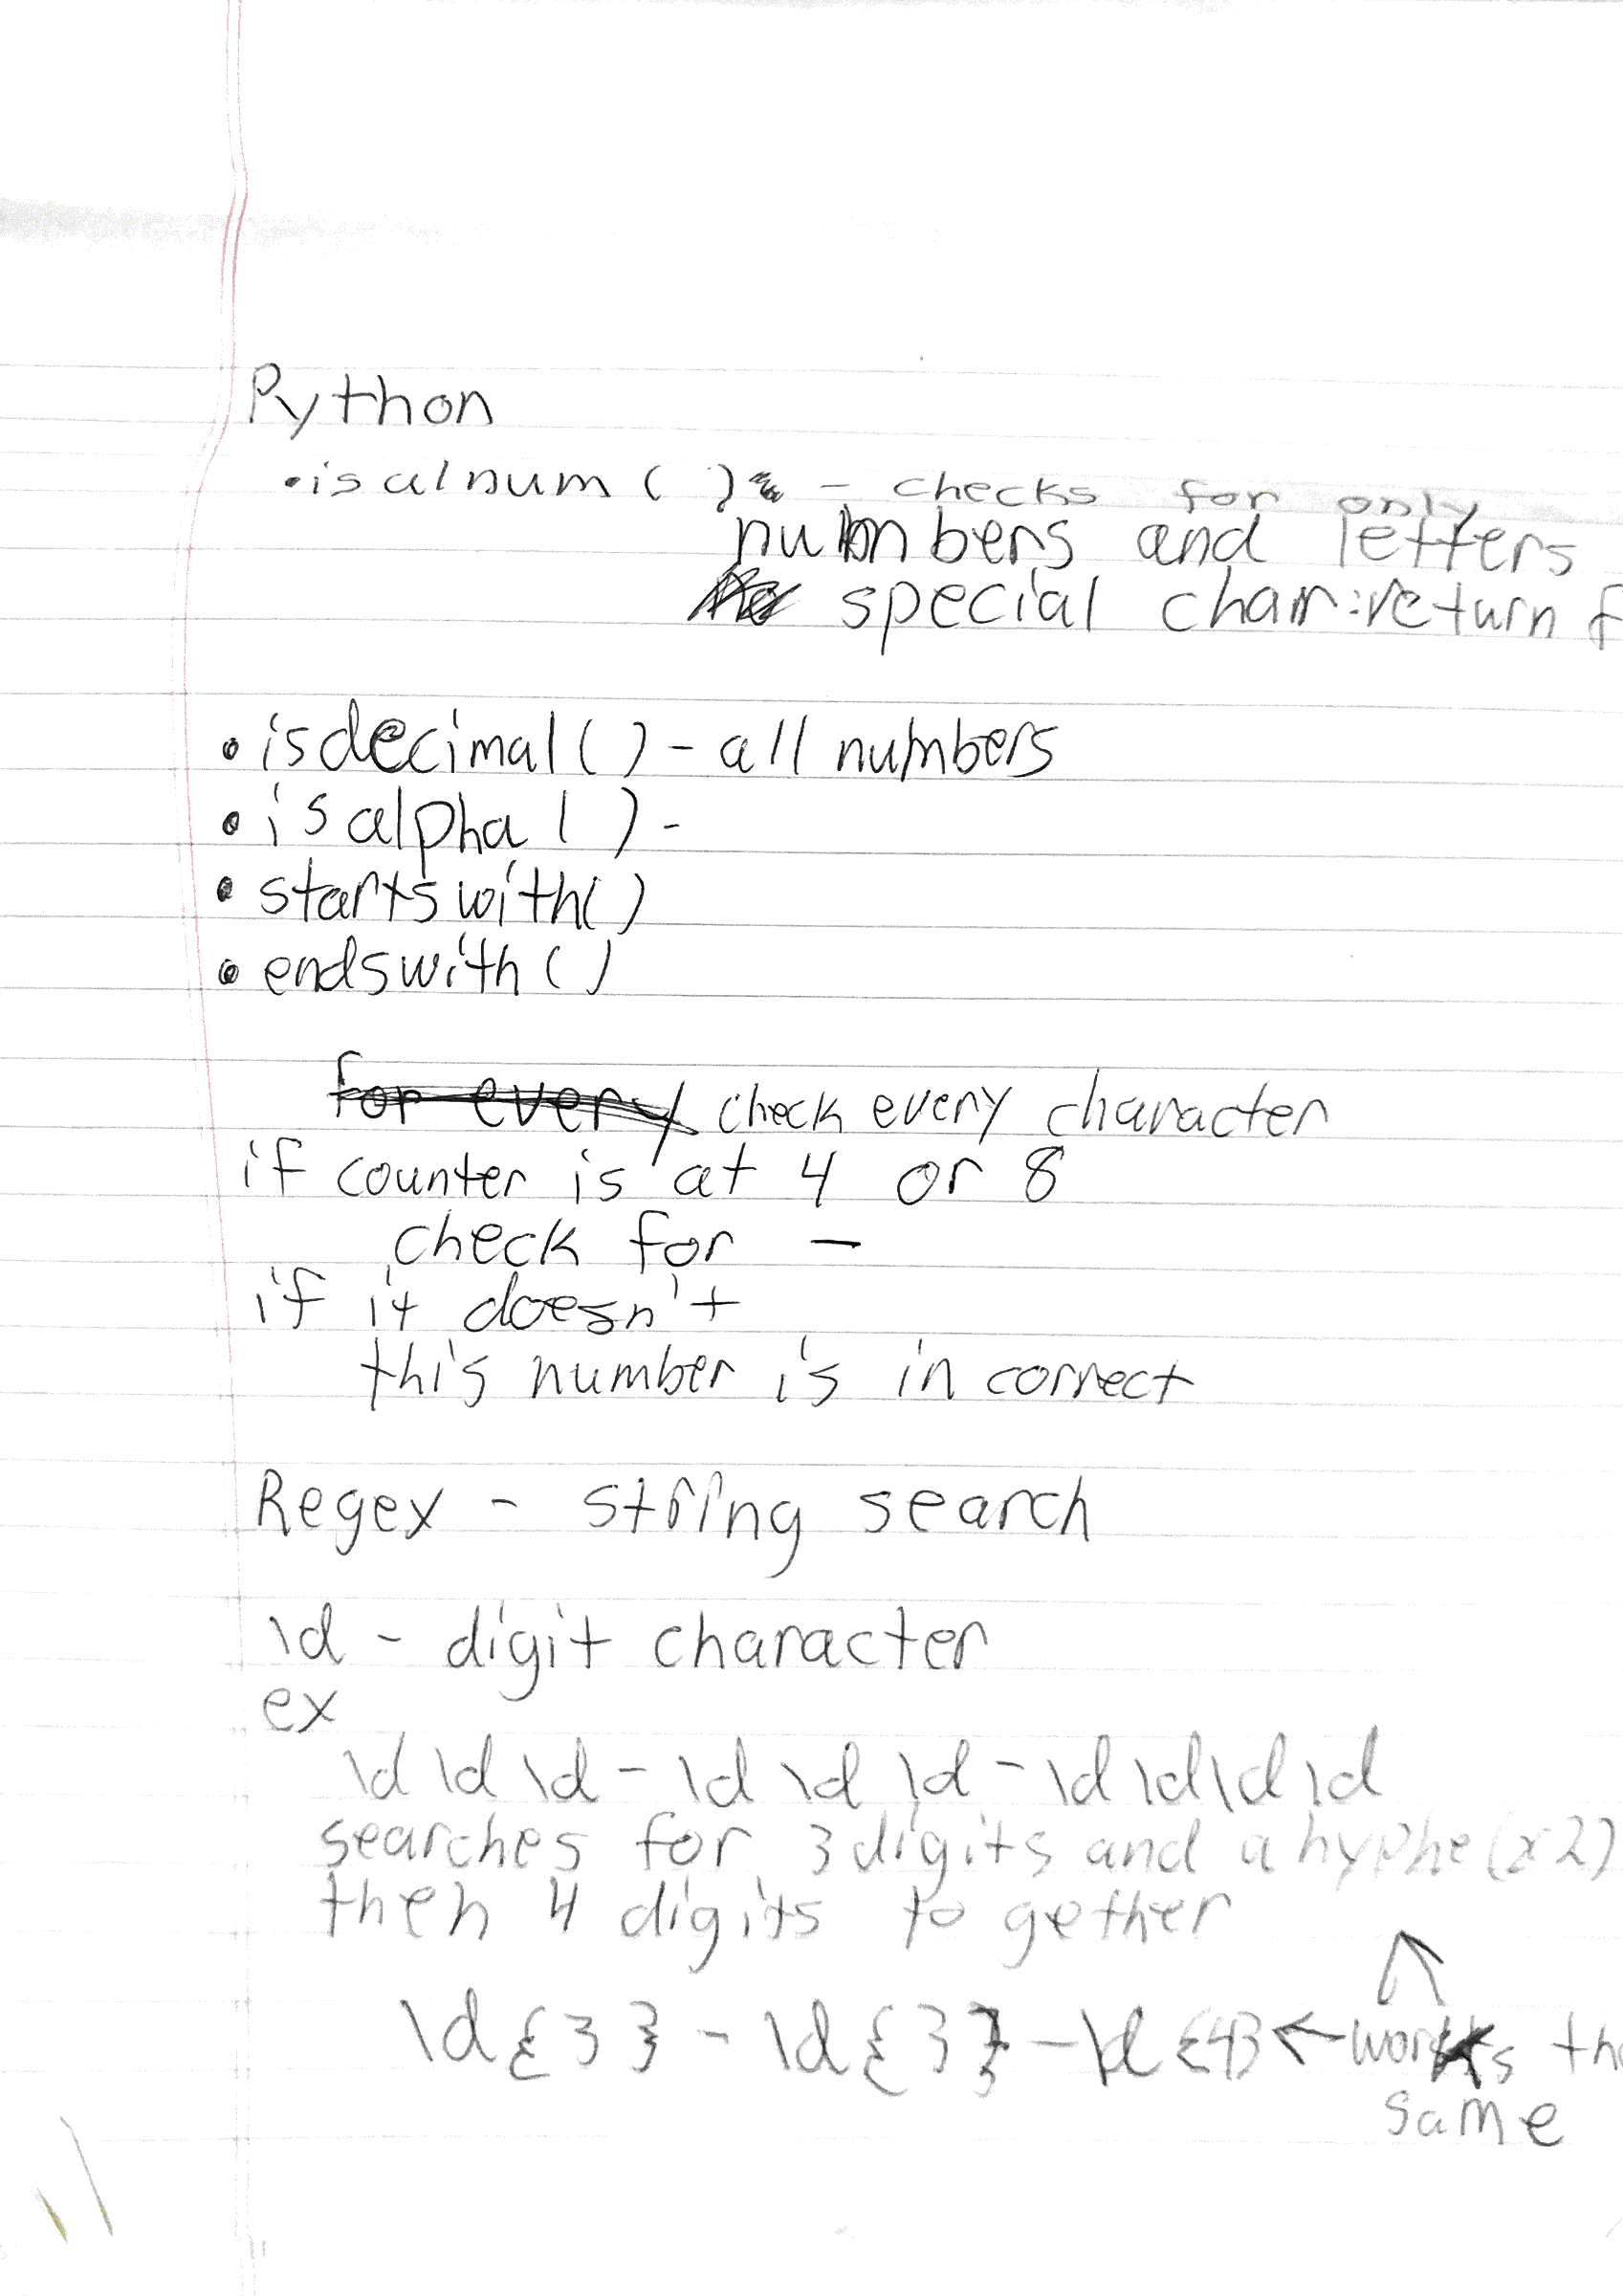 Python
•isalnum ( ) - checks for only
numbers and letters
special char:return f
• isdecimal() - all numbers
• isalpha( ) -
• startswith()
• endswith()
for every check every character
if counter is at 4 or 8
check for -
if it doesn't
this number is in correct
Regex - string search
\d - digit character
ex
\d\d\d-\d\d\d-\d\d\d\d
searches for 3 digits and a hyphe(x2)
then 4 digits to gether
\d{3}-\d{3}-\d{4} ← works the
same